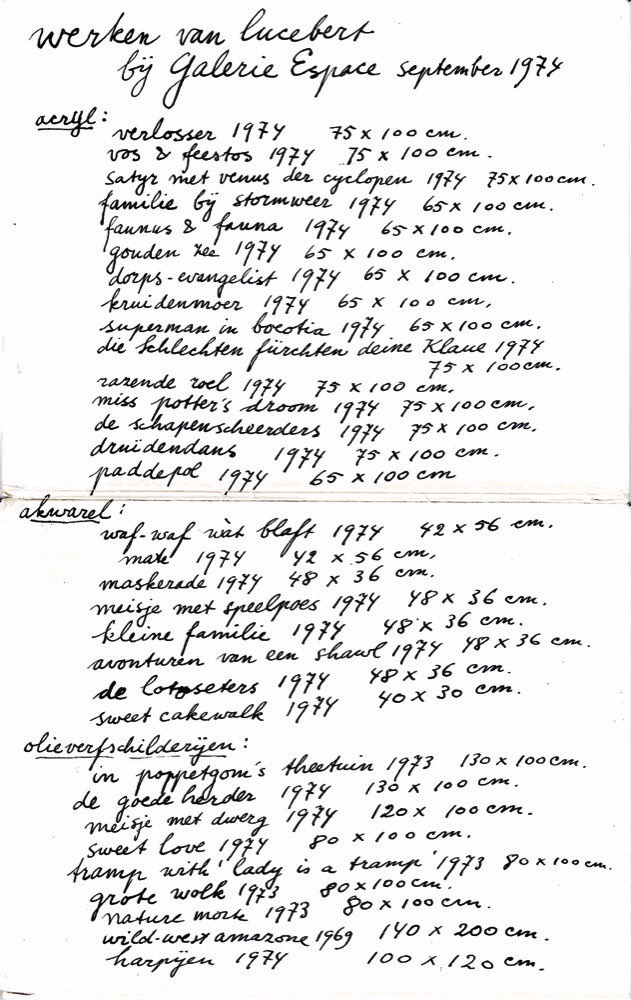 werken van lucebert
bij Galerie Espace september 1974
acryl:
verlosser 1974 75 x 100 cm.
vos & feestos 1974 75 x 100 cm.
satyr met venus der cyclopen 1974 75x100cm.
familie bij stormweer 1974 65 x 100 cm.
faunus & fauna 1974 65 x 100 cm.
gouden zee 1974 65 x 100 cm.
dorps-evangelist 1974 65 x 100 cm.
kruidenmoer 1974 65 x 100 cm.
superman in boeotia 1974 65 x 100 cm.
die Schlechten fürchten deine Klaue 1974
75 x 100cm.
razende roel 1974 75 x 100 cm.
miss potter's droom 1974 75 x 100 cm.
de schapenscheerders 1974 75 x 100 cm.
druïdendans 1974 75 x 100 cm.
paddepol 1974 65 x 100 cm
akwarel:
waf-waf wàt blaft 1974 42 x 56 cm.
mate 1974 42 x 56 cm.
maskerade 1974 48 x 36 cm.
meisje met speelpoes 1974 48 x 36 cm.
kleine familie 1974 48 x 36 cm.
avonturen van een shawl 1974 48 x 36 cm.
de lotoseters 1974 48 x 36 cm.
sweet cakewalk 1974 40 x 30 cm.
olieverfschilderijen:
in poppetgom's theetuin 1973 130 x 100cm.
de goede herder 1974 130 x 100 cm.
meisje met dwerg 1974 120 x 100 cm.
sweet love 1974 80 x 100 cm.
tramp with 'lady is a tramp' 1973 80 x 100 cm.
grote wolk 1973 80 x 100 cm.
nature morte 1973 80 x 100 cm.
wild-west amazone 1969 140 x 200 cm.
harpijen 1974 100 x 120 cm.